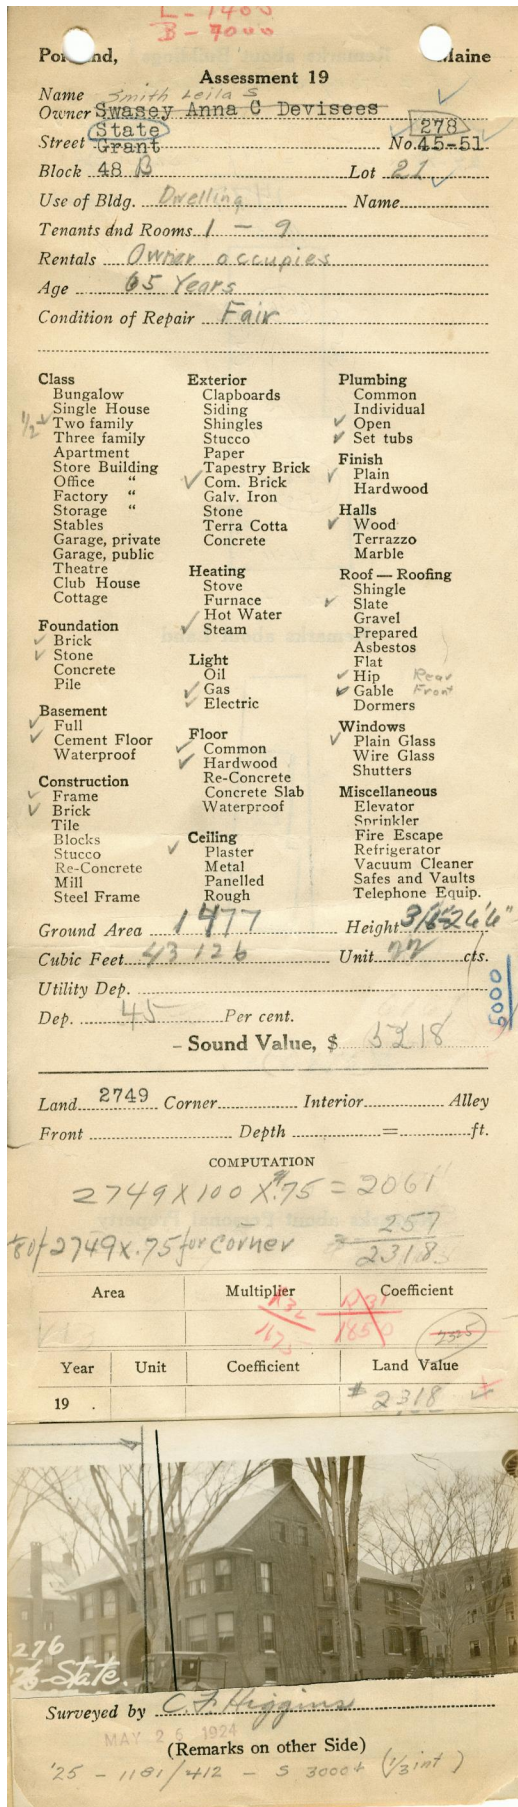 L - 1400
B - 7000
Portland, Maine
Assessment 19
Name Smith Leila S
Owner Swasey Anna C Devisees
State 278
Street Grant No. 45-51
Block 48 B Lot 21
Use of Bldg. Dwelling Name
Tenants and Rooms 1 - 9
Rentals Owner occupies
Age 65 Years
Condition of Repair Fair
Class
Bungalow
Single House
1/2 Two family
Three family
Apartment
Store Building
Office "
Factory "
Storage "
Stables
Garage, private
Garage, public
Theatre
Club House
Cottage
Foundation
Brick
Stone
Concrete
Pile
Basement
Full
Cement Floor
Waterproof
Construction
Frame
Brick
Tile
Blocks
Stucco
Re-Concrete
Mill
Steel Frame
Exterior
Clapboards
Siding
Shingles
Stucco
Paper
Tapestry Brick
Com. Brick
Galv. Iron
Stone
Terra Cotta
Concrete
Heating
Stove
Furnace
Hot Water
Steam
Light
Oil
Gas
Electric
Floor
Common
Hardwood
Re-Concrete
Concrete Slab
Waterproof
Ceiling
Plaster
Metal
Panelled
Rough
Plumbing
Common
Individual
Open
Set tubs
Finish
Plain
Hardwood
Halls
Wood
Terrazzo
Marble
Roof — Roofing
Shingle
Slate
Gravel
Prepared
Asbestos
Flat
Hip Rear
Gable Front
Dormers
Windows
Plain Glass
Wire Glass
Shutters
Miscellaneous
Elevator
Sprinkler
Fire Escape
Refrigerator
Vacuum Cleaner
Safes and Vaults
Telephone Equip.
Ground Area 1477 Height 26'6"
Cubic Feet 43126 Unit 22 cts.
Utility Dep.
5000
Dep. 45 Per cent.
- Sound Value, $ 5218
Land 2749 Corner Interior Alley
Front Depth = ft.
COMPUTATION
2749 X 100 X .75 = 2061
257
of 2749 X .75 for Corner 2318
Area Multiplier Coefficient
R32 R31
1175 1850 2325
Year Unit Coefficient Land Value
19 . $ 2318
276
State.
Surveyed by C. F. Higgins
MAY 26 1924
(Remarks on other Side)
'25 - 1181/412 - S 3000+ (1/3 int)